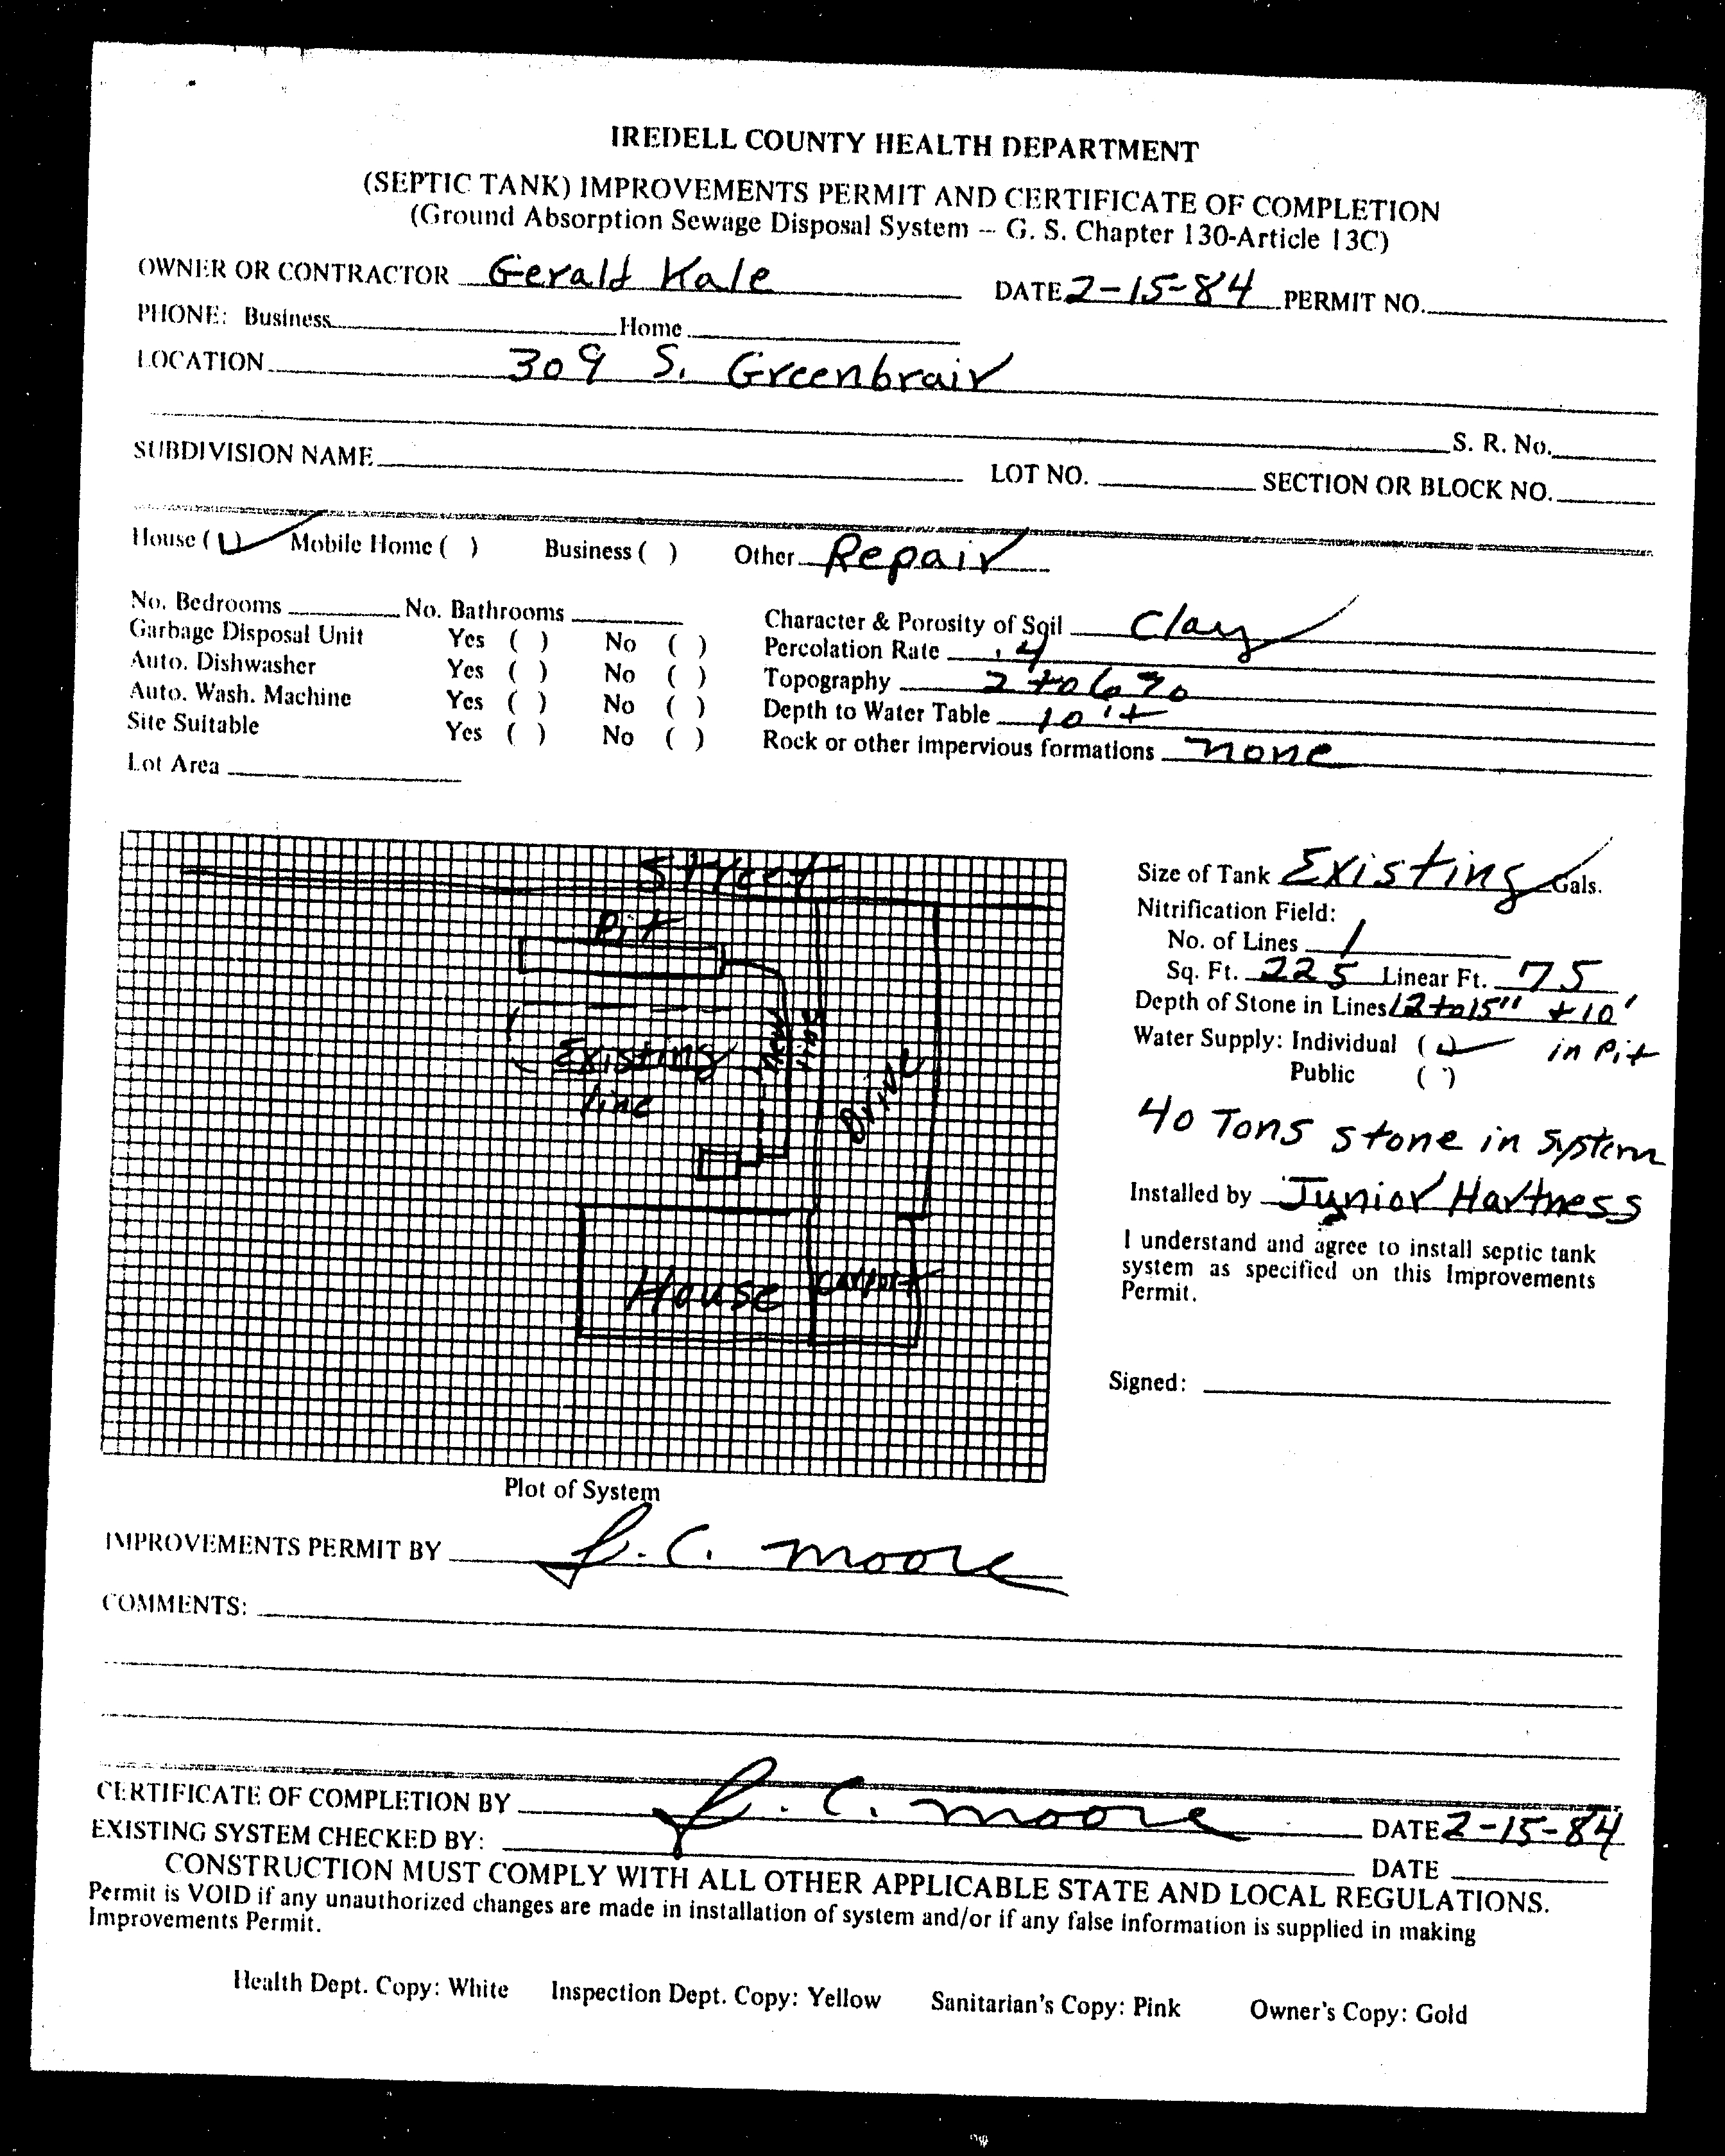 IREDELL COUNTY HEALTH DEPARTMENT
(SEPTIC TANK) IMPROVEMENTS PERMIT AND CERTIFICATE OF COMPLETION
(Ground Absorption Sewage Disposal System -- G. S. Chapter 130-Article 13C)
OWNER OR CONTRACTOR Gerald Kale DATE 2-15-84 PERMIT NO.
PHONE: Business Home
LOCATION 309 S. Greenbrair
S. R. No.
SUBDIVISION NAME LOT NO. SECTION OR BLOCK NO.
House (✓) Mobile Home ( ) Business ( ) Other Repair
No. Bedrooms No. Bathrooms
Garbage Disposal Unit Yes ( ) No ( )
Auto. Dishwasher Yes ( ) No ( )
Auto. Wash. Machine Yes ( ) No ( )
Site Suitable Yes ( ) No ( )
Lot Area
Character & Porosity of Soil Clay
Percolation Rate .4
Topography 2 to 6 %
Depth to Water Table 10'+
Rock or other impervious formations none
Street
Pit
Existing
line
New
line
Drive
House
Carport
Plot of System
Size of Tank Existing Gals.
Nitrification Field:
No. of Lines 1
Sq. Ft. 225 Linear Ft. 75
Depth of Stone in Lines 12 to 15" + 10'
Water Supply: Individual (✓) in Pit
Public ( )
40 Tons stone in system
Installed by Junior Hartness
I understand and agree to install septic tank
system as specified on this Improvements
Permit.
Signed:
IMPROVEMENTS PERMIT BY J. C. Moore
COMMENTS:
CERTIFICATE OF COMPLETION BY J. C. Moore DATE 2-15-84
EXISTING SYSTEM CHECKED BY: DATE
CONSTRUCTION MUST COMPLY WITH ALL OTHER APPLICABLE STATE AND LOCAL REGULATIONS.
Permit is VOID if any unauthorized changes are made in installation of system and/or if any false information is supplied in making
Improvements Permit.
Health Dept. Copy: White Inspection Dept. Copy: Yellow Sanitarian's Copy: Pink Owner's Copy: Gold